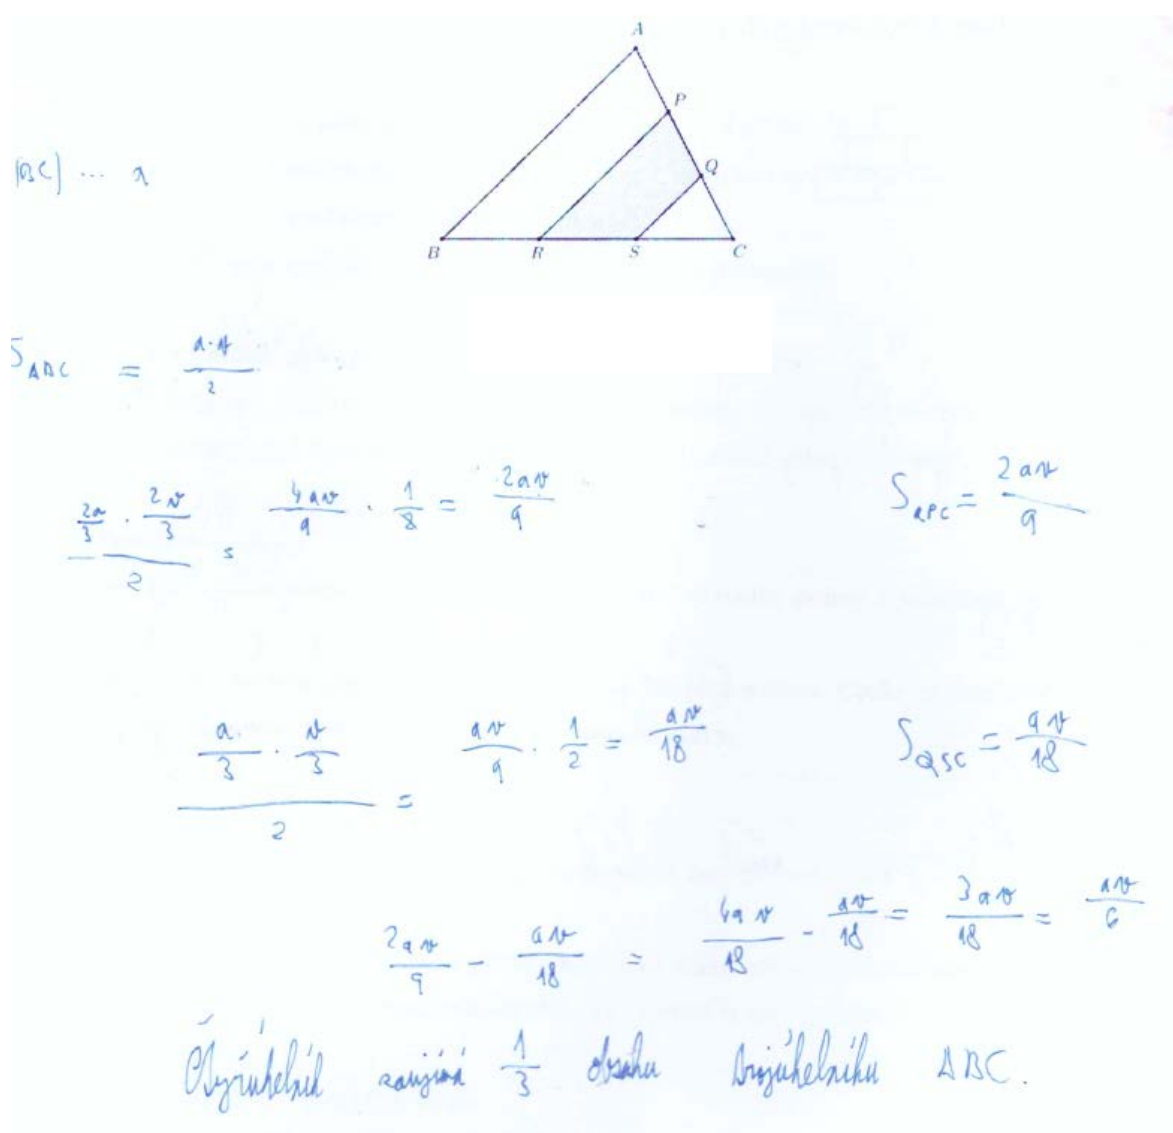 A
P
Q
B R S C
|BC| ... a
S_ABC = a·v/2
(2a/3 · 2v/3)/2 = 4av/9 · 1/2 = 2av/9 S_RPC = 2av/9
(a/3 · v/3)/2 = av/9 · 1/2 = av/18 S_QSC = av/18
2av/9 - av/18 = 4av/18 - av/18 = 3av/18 = av/6
Čtyřúhelník zaujímá 1/3 obsahu trojúhelníku ABC.